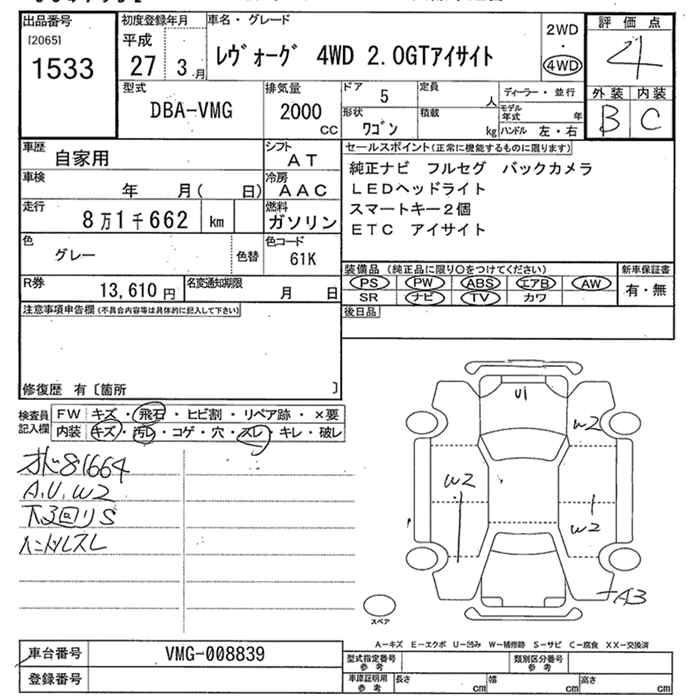 出品番号
[2065]
1533
初度登録年月
平成
27 3 月
車名・グレード
ﾚｳﾞｫｰｸﾞ 4WD 2.0GTアイサイト
2WD
・
4WD
評価点
4
外装 内装
B C
型式
DBA-VMG
排気量
2000
CC
ドア 5
定員 人
形状
ワゴン
積載 kg
ディーラー・並行
モデル年式 年
ハンドル 左・右
車歴
自家用
シフト
AT
車検
年 月( 日)
冷房
AAC
走行
8万1千662 km
燃料
ガソリン
色
グレー
色替
色コード
61K
R券
13,610 円
名変通知期限
月 日
セールスポイント(正常に機能するものに限ります)
純正ナビ フルセグ バックカメラ
LEDヘッドライト
スマートキー2個
ETC アイサイト
装備品(純正品に限り○をつけてください)
PS PW ABS エアB AW
SR ナビ TV カワ
新車保証書
有・無
後日品
注意事項申告欄(不具合内容等は具体的に記入して下さい)
修復歴 有〔箇所 〕
検査員
記入欄
FW キズ・飛石・ヒビ割・リペア跡・×要
内装 キズ・汚レ・コゲ・穴・スレ・キレ・破レ
81664
A,U,W2
下回りS
ハンドルスレ
U1
W2
W2
W2
A3
スペア
A－キズ E－エクボ U－凹み W－補修跡 S－サビ C－腐食 XX－交換済
車台番号
VMG-008839
登録番号
型式指定番号
参考
類別区分番号
参考
車庫証明用
参考
長さ cm 幅 cm 高さ cm